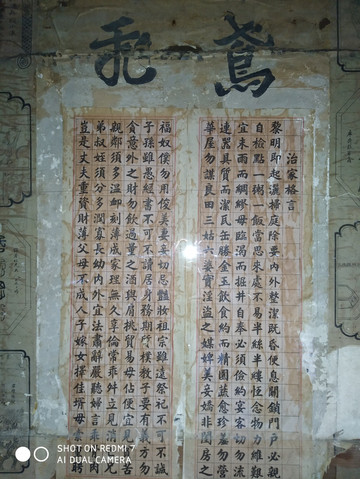 鳶飛
治家格言
黎明即起灑掃庭除要內外整潔既昏便息關鎖門戶必親
自檢點一粥一飯當思來處不易半絲半縷恆念物力維艱
宜未雨而綢繆毋臨渴而掘井自奉必須儉約宴客切勿流
連器具質而潔瓦缶勝金玉飲食約而精園蔬愈珍羞勿
華屋勿謀良田三姑六婆實淫盜之媒婢美妾嬌非閨房之
福奴僕勿用俊美妻妾切忌艷妝祖宗雖遠祭祀不可不誠
子孫雖愚經書不可不讀居身務期質樸教子要有義方勿
貪意外之財勿飲過量之酒與肩挑貿易毋佔便宜見苦
親鄰須多溫卹刻薄成家理無久享倫常乖舛立見消
弟叔姪須分多潤寡長幼內外宜法肅辭嚴聽婦言乖肉
豈是丈夫重貲財薄父母不成人子嫁女擇佳壻毋索聘
SHOT ON REDMI 7
AI DUAL CAMERA